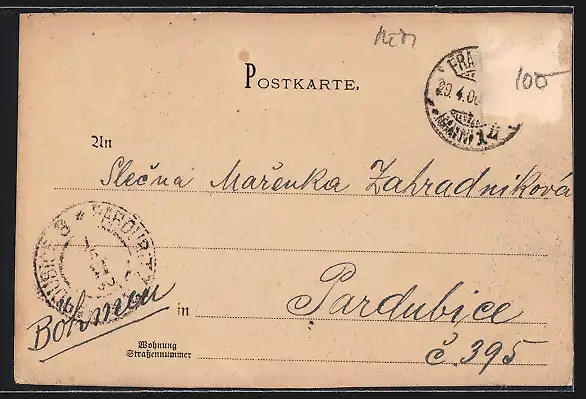 POSTKARTE.
100
FRA
29.4.00
An
Slečna Mařenka Zahradníková
PARDUBITZ
PARDUBICE
Böhmen
in Pardubice
Wohnung
Straßennummer
č. 395